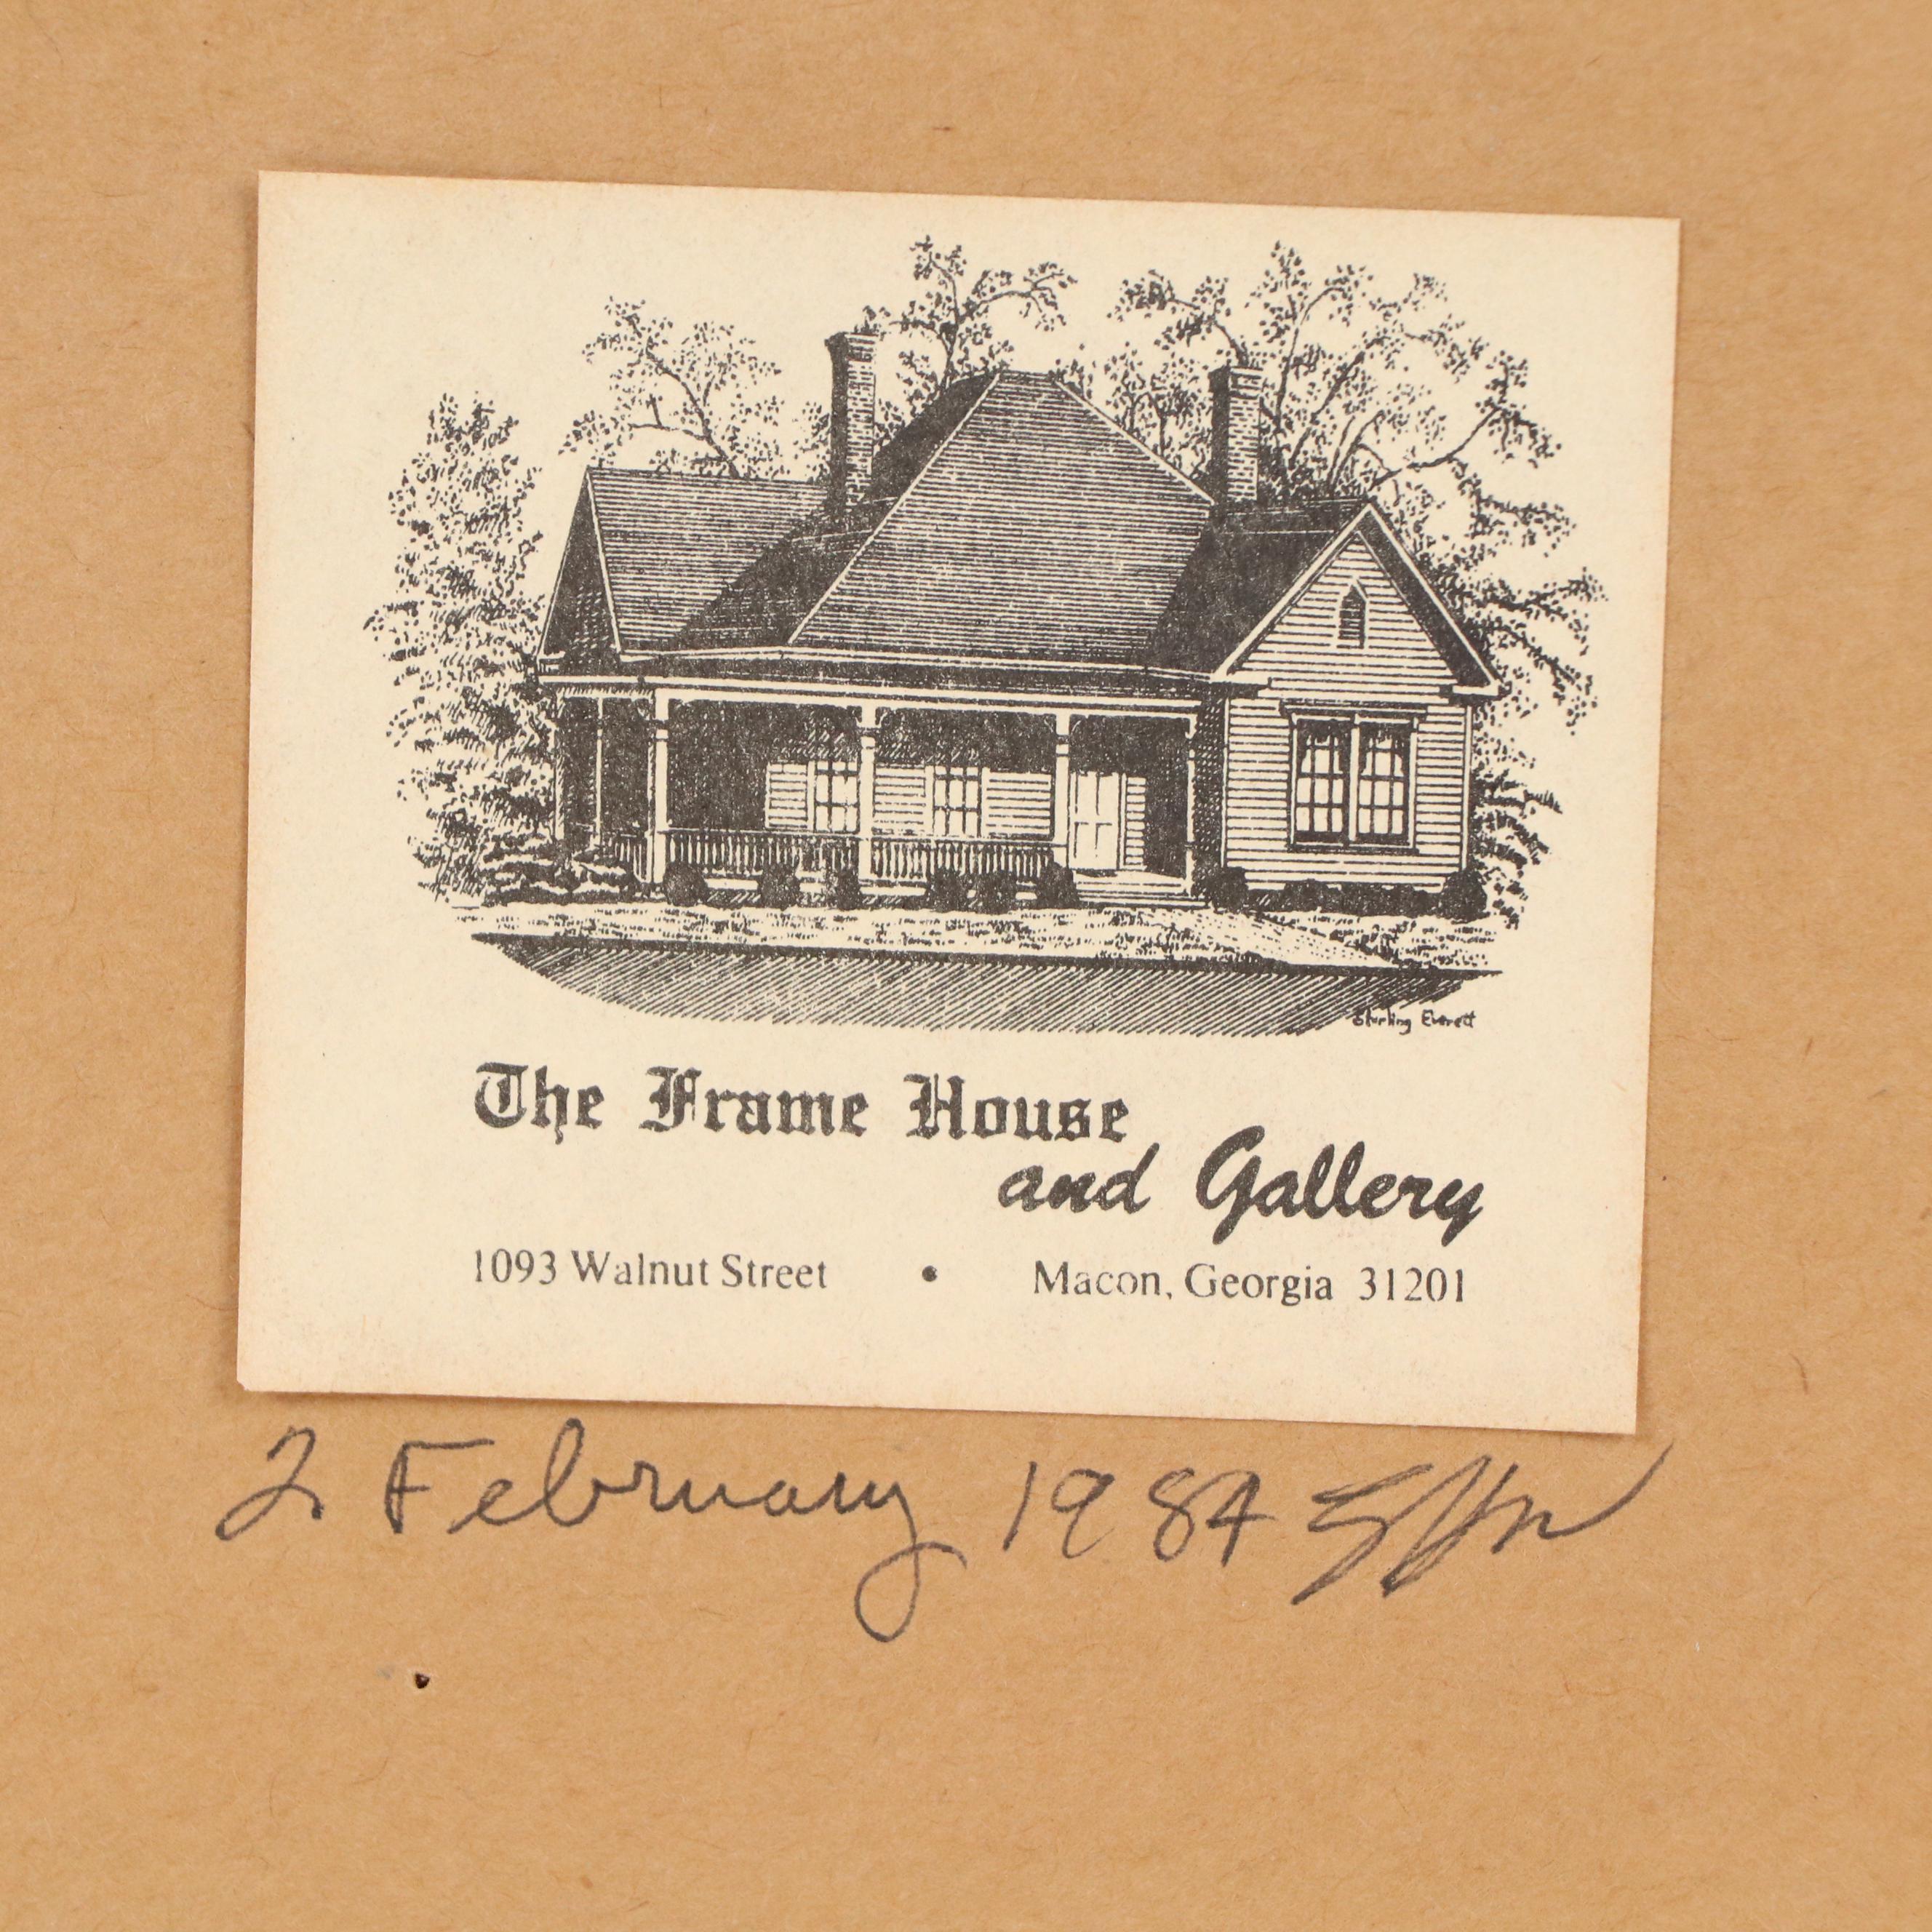 Sterling Everett
The Frame House
and Gallery
1093 Walnut Street • Macon, Georgia 31201
2 February 1984